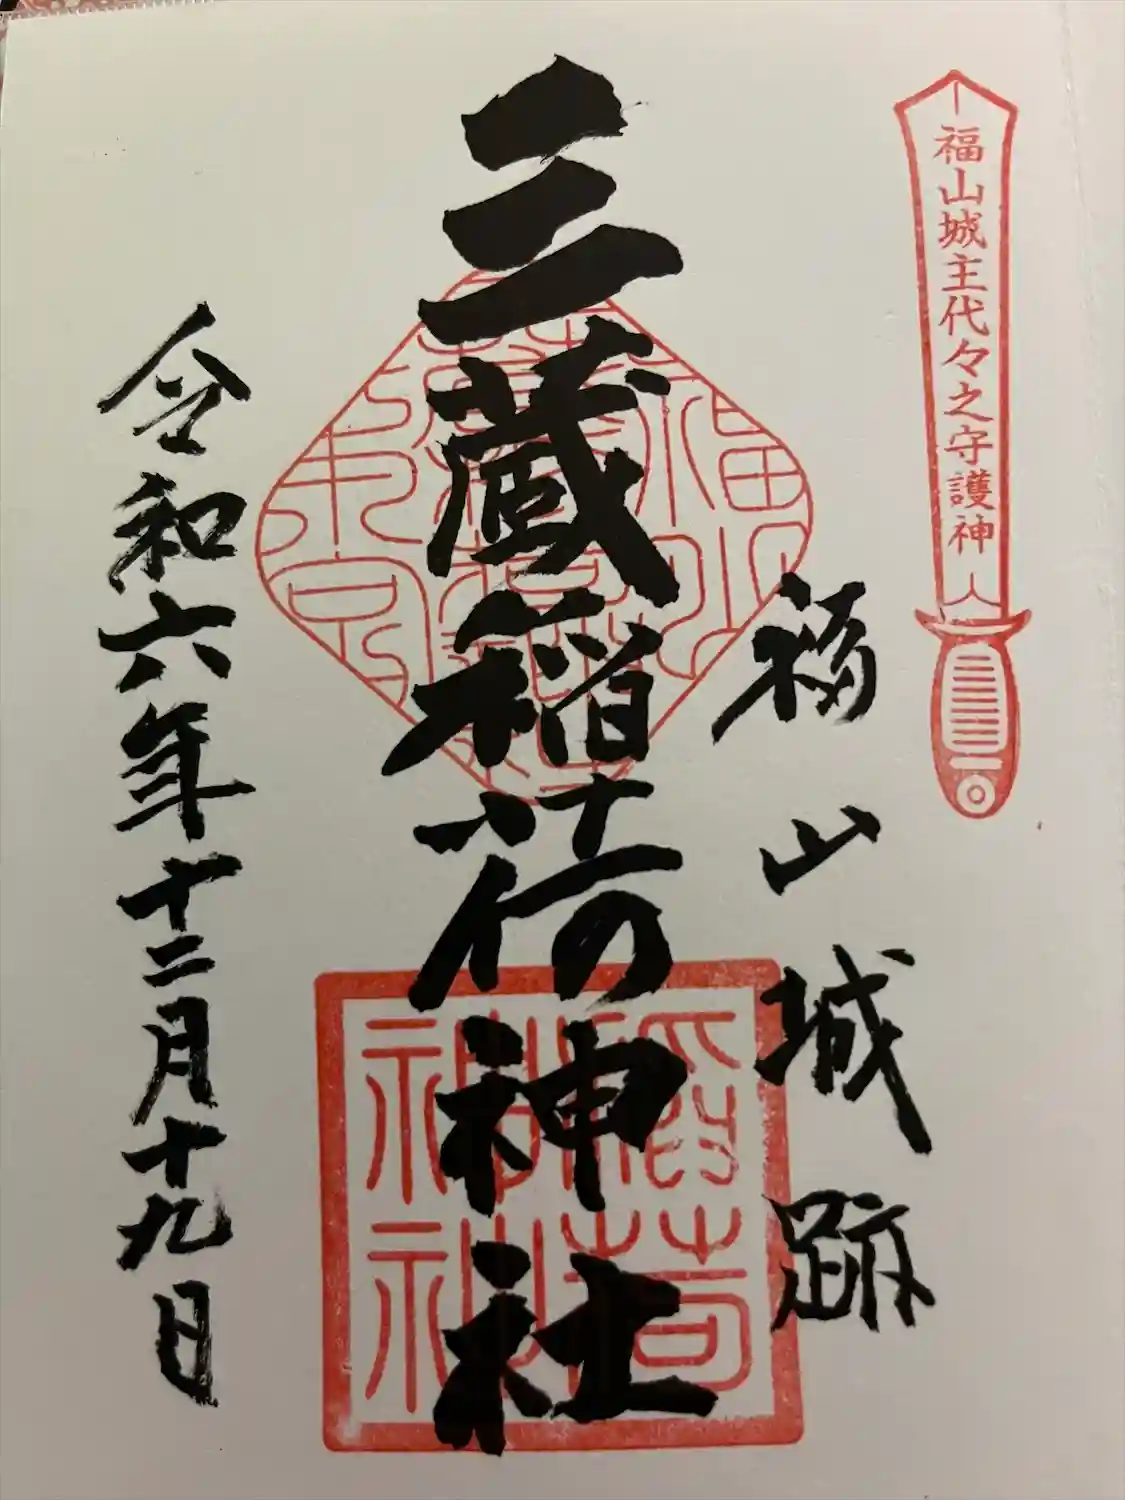 福山城主代々之守護神
福山城跡
三蔵稲荷神社
令和六年十二月十九日